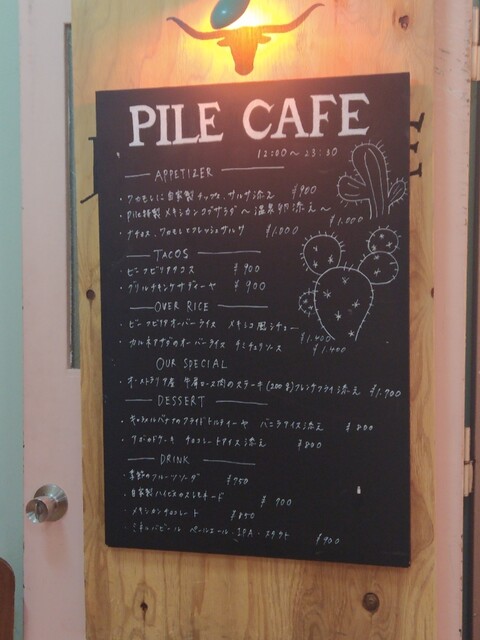 PILE CAFE
12:00～23:30
APPETIZER
・ワカモレに自家製チップス、サルサ添え ¥900
・pile特製 メキシカンコブサラダ ～温泉卵添え～ ¥1.000
・ナチョス、ワカモレとフレッシュサルサ ¥1.000
TACOS
・ビーフビリアタコス ¥900
・グリルチキンケサディーヤ ¥900
OVER RICE
・ビーフビリアオーバーライス メキシコ風シチュー ¥1.400
・カルネアサダのオーバーライス チミチュリソース ¥1.400
OUR SPECIAL
・オーストラリア産 牛肩ロース肉のステーキ(200g)フレンチフライ添え ¥1.700
DESSERT
・キャラメルバナナのフライドトルティーヤ バニラアイス添え ¥800
・ケーキ チョコレートアイス添え ¥800
DRINK
・季節のフルーツソーダ ¥750
・自家製ハイビスカスレモネード ¥700
・メキシカンチョコレート ¥850
・ミネルバビール ペールエール・IPA・スタウト ¥900